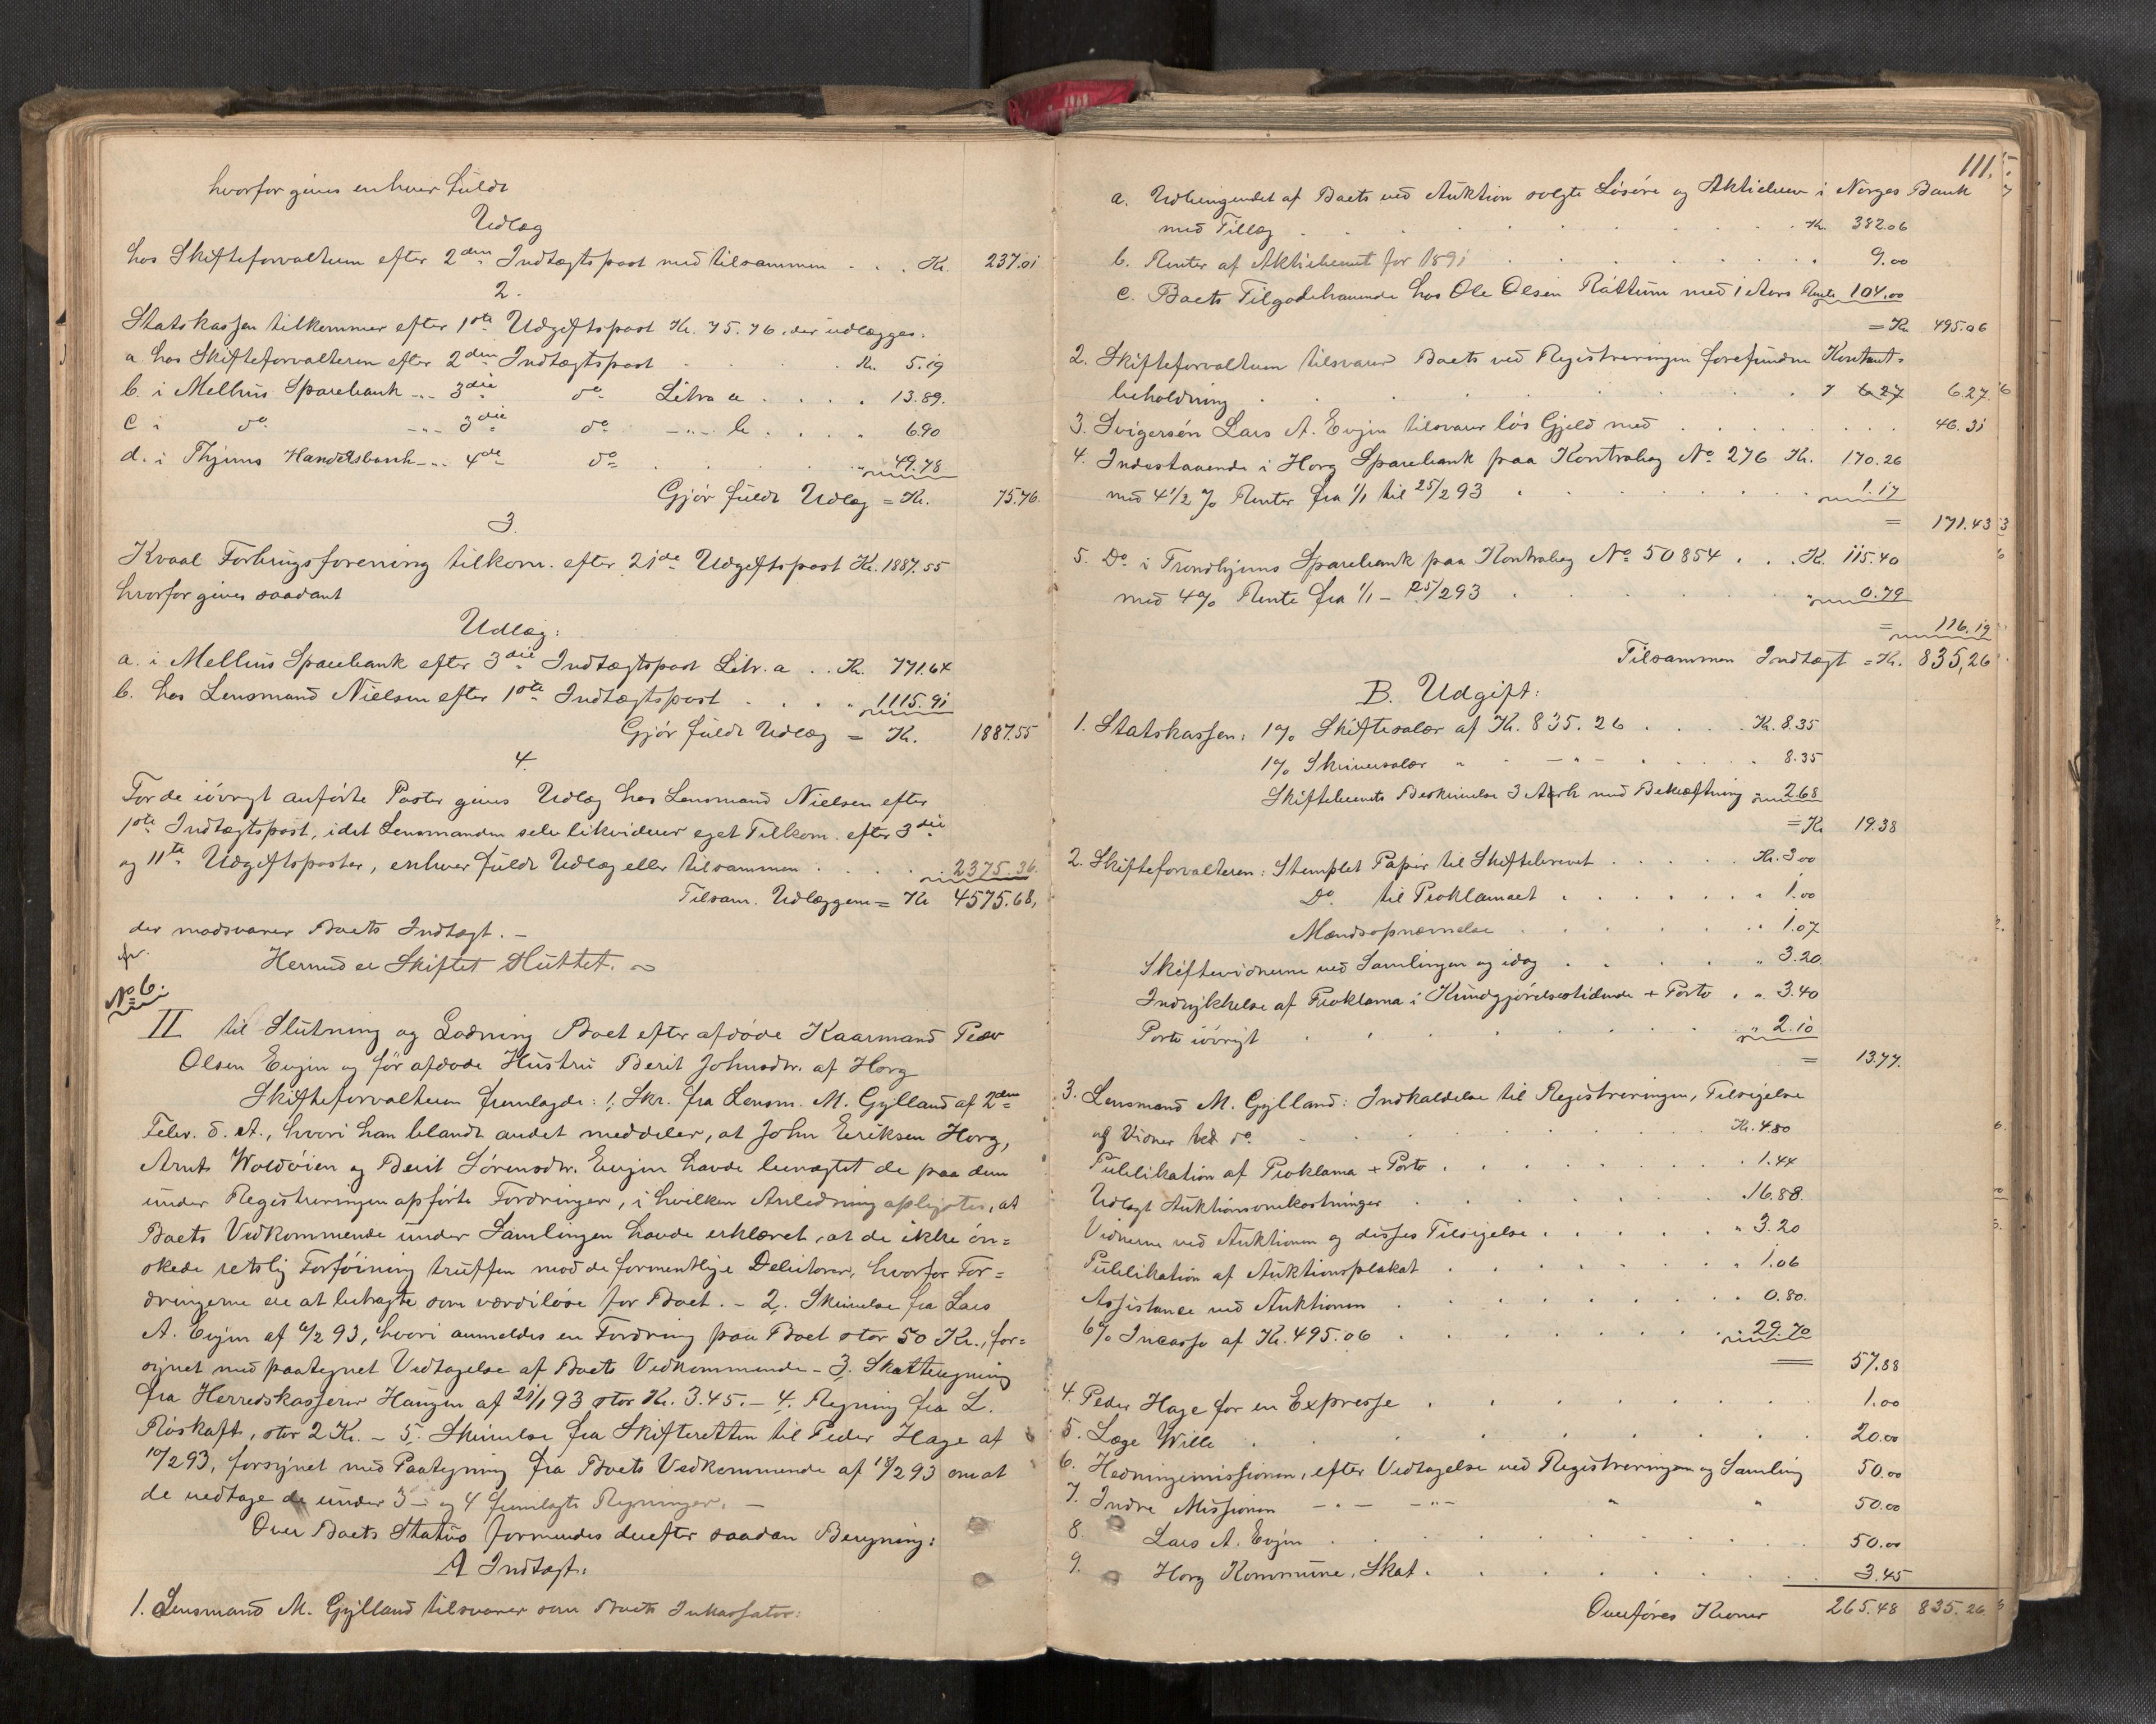 hvorfor gives enhver fuldt
Udlæg
hos Skifteforvalteren efter 2den Indtægtspost med tilsammen . . . Kr. 237.01
2.
Statskassen tilkommer efter 1ste Udgiftspost Kr. 75.76. der udlægges:
a. hos Skifteforvalteren efter 2den Indtægtspost . . . Kr. 5.19
b. i Melhus Sparebank -"- 3die do Litra a . . . . 13.89.
c i do -"- 3die do -"- b . . . . 6.90
d. i Thjems Handelsbank -"- 4de do . . . . " 49.78
Gjør fuldt Udlæg = Kr. 75.76.
3.
Kvaal Forbrugsforening tilkom. efter 21de Udgiftspost Kr. 1887.55
hvorfor gives saadant
Udlæg:
a. i Melhus Sparebank efter 3die Indtægtspost Litr. a . . Kr. 771.64
b. hos Lensmand Nielsen efter 1ste Indtægtspost . . . . " 1115.91
Gjør fuldt Udlæg = Kr. 1887.55
4.
For de iøvrigt anførte Poster gives Udlæg hos Lensmand Nielsen efter
1ste Indtægtspost, idet Lensmanden selv likviderer eget Tilkom. efter 3die
og 11te Udgiftsposter, enhver fuldt Udlæg eller tilsammen . . . . 2375.36.
Tilsam. Udlæggene = Kr 4575.68,
der modsvarer Boets Indtægt. –
Hermed er Skiftet Sluttet.
No 6.
II til Slutning og Lodning Boet efter afdøde Kaarmand Peder
Olsen Evjen og før afdøde Hustru Berit Johnsdtr. af Horg
Skifteforvalteren fremlagde: 1, Skr. fra Lensm. M. Gylland af 2den
Febr. d. A., hvori han blandt andet meddeler, at John Eeriksen Horg,
Arnt Woldøien og Berit Sørensdtr. Evjen havde benægtet de paa dem
under Registreringen opførte Fordringer, i hvilken Anledning oplystes, at
Boets Vedkommende under Samlingen havde erklæret, at de ikke øn=
skede retslig Forføining truffen mod de formentlige Debitorer, hvorfor For=
dringerne ere at betragte som værdiløse for Boet. – 2, Skrivelse fra Lars
A. Evjen af 6/2 93, hvori anmeldes en Fordring paa Boet stor 50 Kr., for=
synet med paategnet Vedtagelse af Boets Vedkommende – 3, Skatteregning
fra Herredskasserer Haugen af 21/1 93 stor Kr. 3.45. – 4, Regning fra L.
Røskaft, stor 2 Kr. – 5, Skrivelse fra Skifteretten til Peder Hage af
10/2 93, forsynet med Paategning fra Boets Vedkommende af 18/2 93 om at
de vedtage de under 3 – og 4 fremlagte Regninger. –
Over Boets Status formeredes derefter saadan Beregning:
A Indtægt:
1. Lensmand M. Gylland tilsvarer som Boets Inkassator:
111.
a. Udbringendet af Boets ved Auktion solgte Løsøre og Aktiebrev i Norges Bank
med Tillæg . . . . Kr. 382.06
b. Renter af Aktiebrevet for 1891 . . . . 9.00
c. Boets Tilgodehavende hos Ole Olsen Råttum med 1 Aars Rente 104.00
= Kr 495.06
2. Skifteforvalteren tilsvarer Boets ved Registreringen forefundne Kontant=
beholdning . . . . 6.27 6.27.
3. Svigersøn Lars A. Evjen tilsvarer løs Gjeld med . . . . 46.31
4. Indestaaende i Horg Sparebank paa Kontrabog No 276 Kr. 170.26
med 4 1/2 % Renter fra 1/1 til 25/2 93 . . . . 1.17
= 171.43
5. Do i Trondhjems Sparebank paa Kontrabog No 50854 . . . Kr. 115.40
med 4% Rente fra 1/1 – 25/2 93 . . . . " 0.79
= 116.19
Tilsammen Indtægt = Kr. 835,26
B. Udgift:
1. Statskassen: 1% Skiftesalær af Kr. 835.26 . . . . Kr. 8.35
1% Skriversalær " - " - . . . . 8.35
Skiftebrevets Beskrivelse 3 Ark med Bekræftning " 2.68
= Kr 19.38
2. Skifteforvalteren: Stemplet Papir til Skiftebrevet . . . . Kr. 3.00
Do til Proklamaet . . . . " 1.00
Mændsopnævnelse . . . . " 1.07
Skiftevidnerne ved Samlingen og idag . . . . " 3.20.
Indrykkelse af Proklama i Kundgjørelsestidende + Porto . " 3.40
Porto iøvrigt . . . . " 2.10
= 13.77.
3. Lensmand M. Gylland: Indkaldelse til Registreringen, Tilsigelse
af Vidner ved do . . . . Kr. 4.80
Publikation af Proklama + Porto . . . . 1.44
Udlagt Auktionsomkostninger . . . . 16.88.
Vidnerne ved Auktionen og disses Tilsigelse . . . . " 3.20
Publikation af Auktionsplakat . . . . " 1.06
Assistance ved Auktionen . . . . 0.80.
6% Incasso af Kr. 495.06 . . . . 29.70
= 57.88
4. Peder Hage for en Expresse . . . . 1.00
5. Læge Wille . . . . 20.00
6. Hedningemissionen, efter Vedtagelse ved Registreringen og Samling 50.00
7. Indre Missionen -"- -"- " " 50.00
8. Lars A. Evjen . . . . 50.00
9. Horg Kommune, Skat . . . . 3.45
Overføres Kroner 265.48 835.26